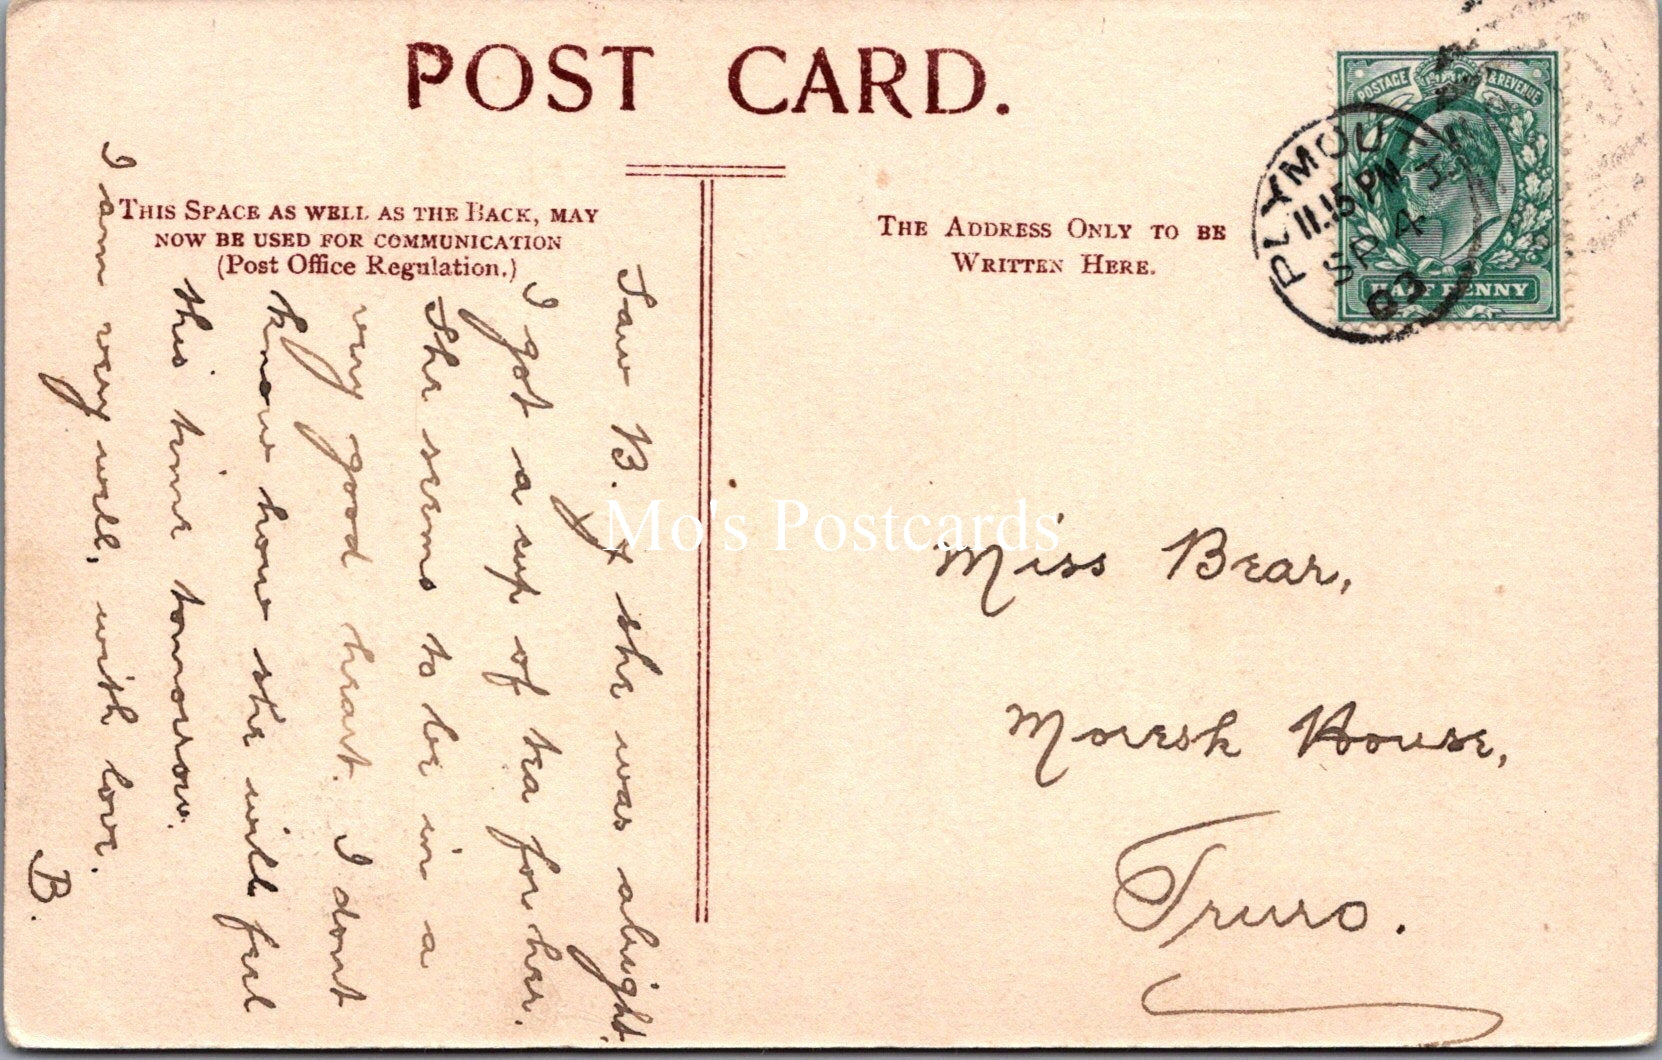 POST CARD.
THIS SPACE AS WELL AS THE BACK, MAY
NOW BE USED FOR COMMUNICATION
(Post Office Regulation.)
THE ADDRESS ONLY TO BE
WRITTEN HERE.
POSTAGE & REVENUE
HALF PENNY
PLYMOUTH
11.15 PM
SP 4
03
Saw B. & she was alright.
I got a cup of tea for her.
She seems to be in a
very good heart. I dont
know how she will feel
this time tomorrow.
I am very well, with love.
B.
Miss Bear,
Moresk House,
Truro.
Mo's Postcards